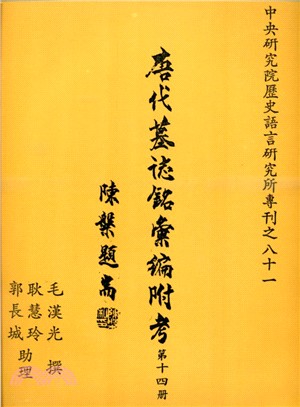 中央研究院歷史語言研究所專刊之八十一
唐代墓誌銘彙編附考 第十四册
陳槃題耑
毛漢光 撰
耿慧玲
郭長城 助理